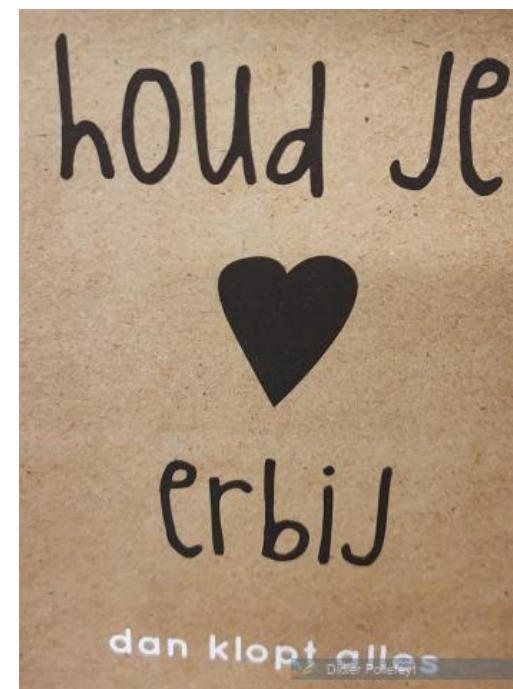 houd je
erbij
dan klopt alles
Didier Pollefeyt